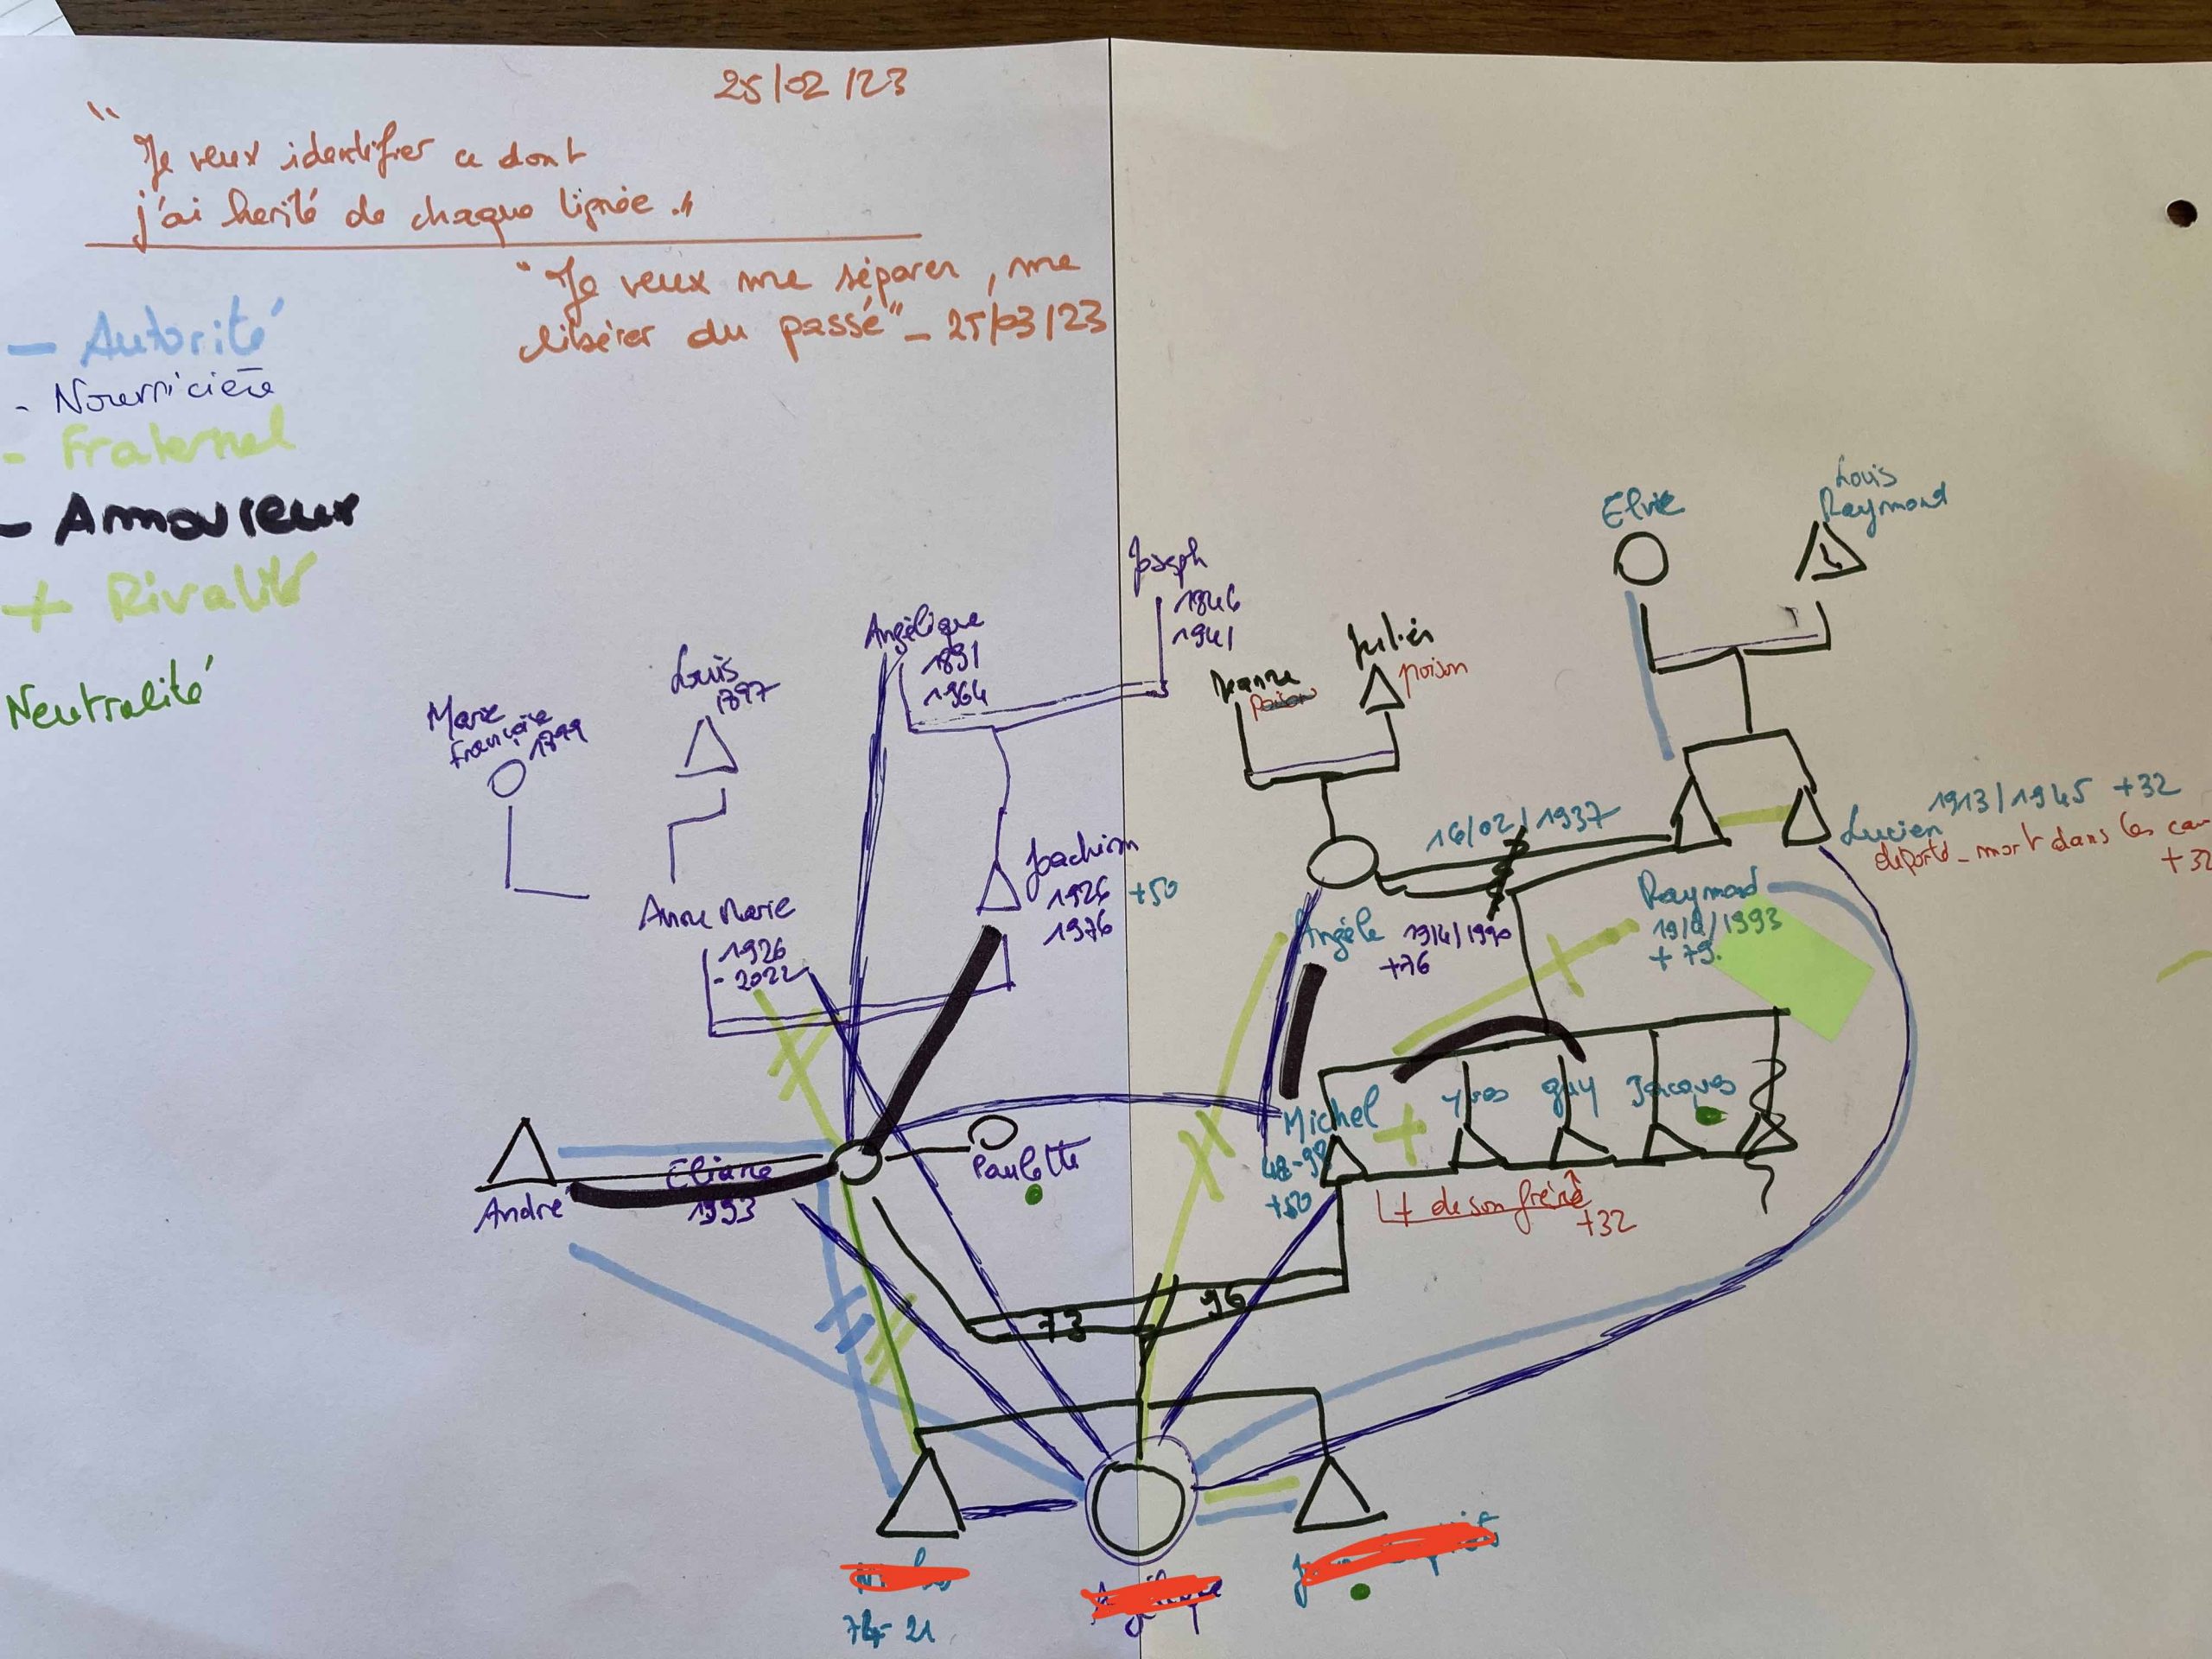 25/02/23
"Je veux identifier ce dont
j'ai herité de chaque lignée."
"Je veux me séparer, me
libérer du passé" - 25/03/23
- Autorité
- Nourricière
- Fraternel
- Amoureux
+ Rivalité
Neutralité
Elvie
Louis
Raymond
Joseph
1846
1941
Angélique
1891
1964
Julien
poison
Jeanne
Louis
1897
Marie
Françoise
1899
16/02/1937
Lucien 1913/1945 +32
deporté - mort dans les
+32
Joachim
1926 +50
1976
Anne Marie
1926
- 2022
Angèle 1914/1990
+76
Raymond
/1993
+79.
Michel
48-98
+50
Yves
Guy
Jacques
+ de son frère
+32
Paulette
André
Eliane
1993
73
96
74-21